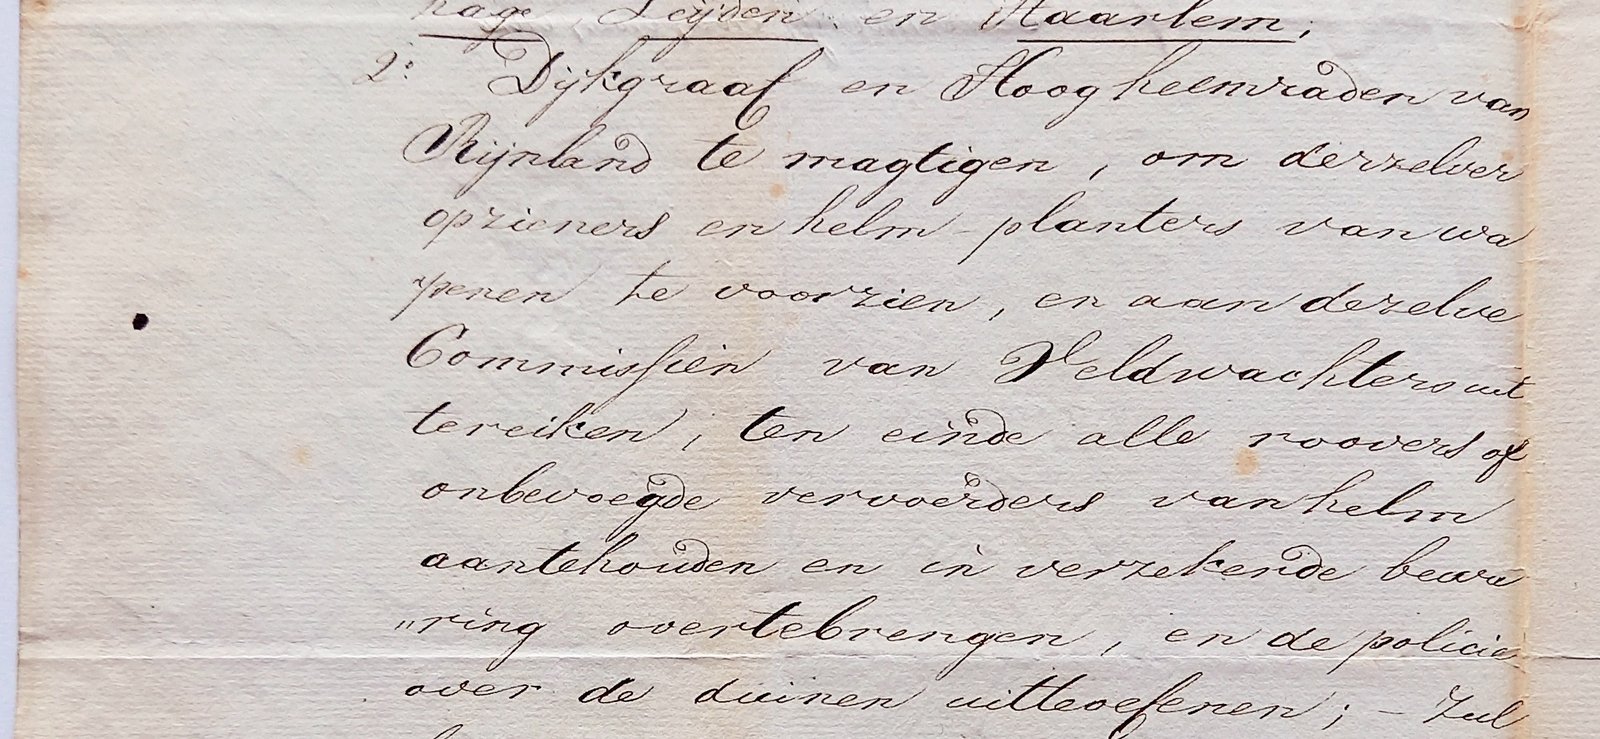 hage, Leijden en Haarlem;
2: Dijkgraaf en Hoogheemraden van
Rijnland te magtigen, om derzelver
opzieners en helm-planters van wa
"penen te voorzien, en aan dezelve
Commissien van Veldwachters uit
tereiken, ten einde alle roovers of
onbevoegde vervoerders van helm
aantehouden en in verzekerde bewa
"ring overtebrengen, en de policie
over de duinen uitteoefenen; - Zul